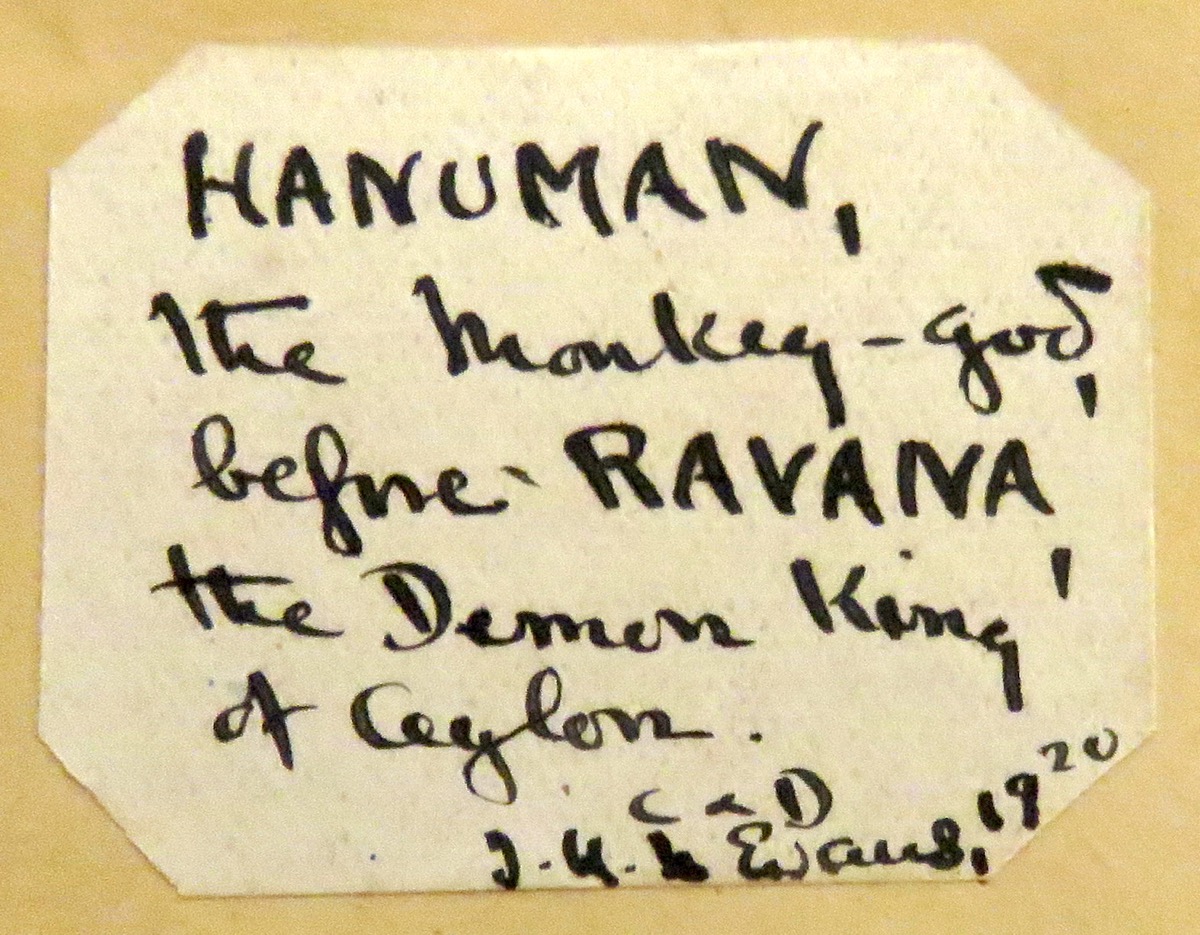 HANUMAN,
the Monkey-god,
before RAVANA,
the Demon King
of Ceylon.
C & D
Evans, 1920